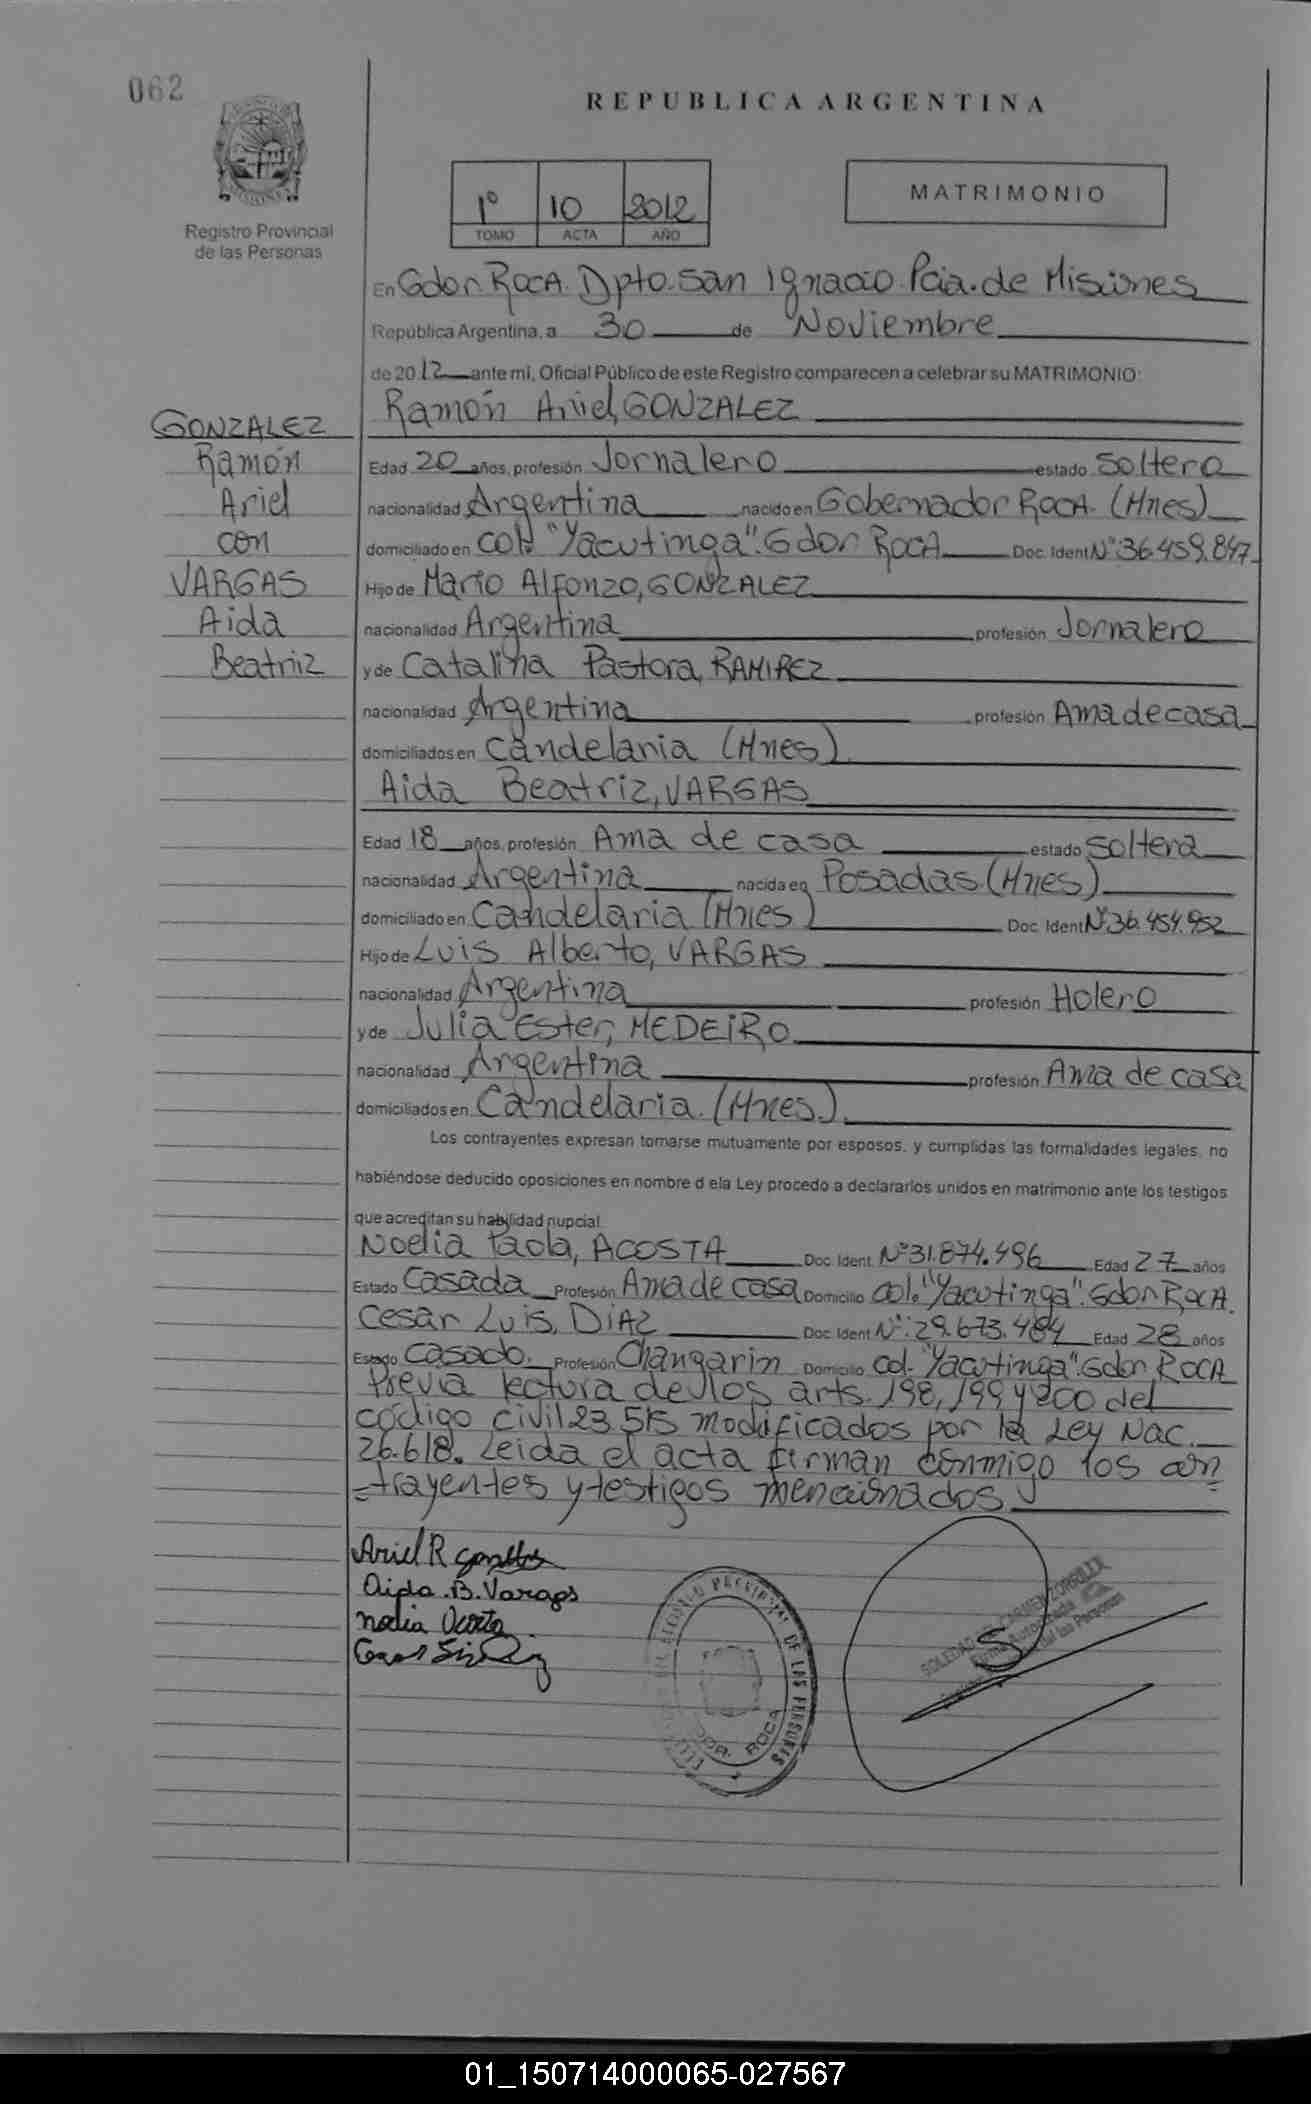 062
REPUBLICA ARGENTINA
Registro Provincial
de las Personas
1º 10 2012
TOMO ACTA AÑO
MATRIMONIO
En Gdor. ROCA. Dpto. San Ignacio. Pcia. de Misiones
República Argentina, a 30 de Noviembre
de 2012 ante mi, Oficial Público de este Registro comparecen a celebrar su MATRIMONIO:
Ramón Ariel, GONZALEZ
GONZALEZ
Ramón
Ariel
con
VARGAS
Aida
Beatriz
Edad 20 años, profesión Jornalero estado soltero
nacionalidad Argentina nacido en Gobernador ROCA. (Mnes)
domiciliado en col. "Yacutinga". Gdor ROCA Doc. Ident Nº 36.459.847
Hijo de Mario Alfonzo, GONZALEZ
nacionalidad Argentina profesión Jornalero
y de Catalina Pastora, RAMIREZ
nacionalidad Argentina profesión Ama de casa
domiciliados en Candelaria (Mnes)
Aida Beatriz, VARGAS
Edad 18 años, profesión Ama de casa estado soltera
nacionalidad Argentina nacida en Posadas (Mnes)
domiciliado en Candelaria (Mnes) Doc. Ident Nº 36.454.952
Hijo de Luis Alberto, VARGAS
nacionalidad Argentina profesión Holero
y de Julia Ester, MEDEIRO
nacionalidad Argentina profesión Ama de casa
domiciliados en Candelaria. (Mnes.)
Los contrayentes expresan tomarse mutuamente por esposos, y cumplidas las formalidades legales, no
habiéndose deducido oposiciones en nombre d ela Ley procedo a declararlos unidos en matrimonio ante los testigos
que acreditan su habilidad nupcial.
Noelia Paola, ACOSTA Doc. Ident. Nº 31.874.496 Edad 27 años
Estado Casada Profesión Ama de casa Domicilio col. "Yacutinga". Gdor ROCA.
Cesar Luis, DIAZ Doc. Ident Nº: 29.673.484 Edad 28 años
Estado Casado. Profesión Changarin Domicilio col. "Yacutinga". Gdor. ROCA
Previa lectura de los arts. 198, 199 y 200 del
código civil 23.515 modificados por la Ley Nac.
26.618. Leida el acta firman conmigo los con
=trayentes y testigos mencionados
Ariel R Gonzalez
Aida. B. Vargas
Noelia Acosta
PROVINCIAL DE LAS PERSONAS
GDOR. ROCA
SOLEDAD DEL CARMEN ZORRILLA
Firma Autorizada
de las Personas
01_150714000065-027567